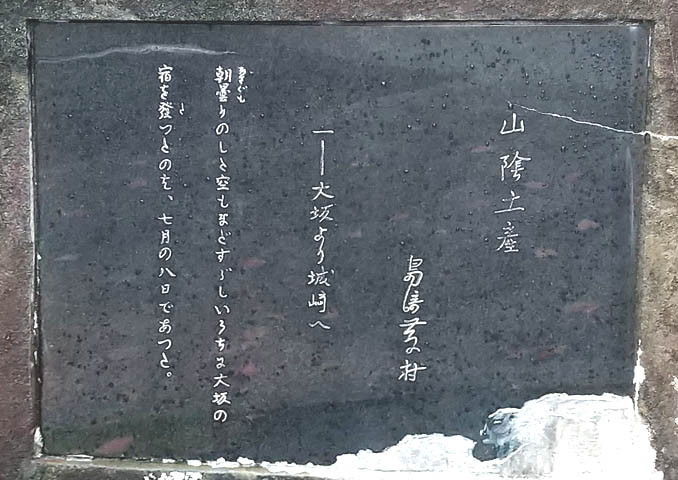 山陰土産
島崎藤村
一｜大坂より城崎へ
朝曇りのした空もまだすゞしいうちに大坂の
宿を發つたのは、七月の八日であつた。